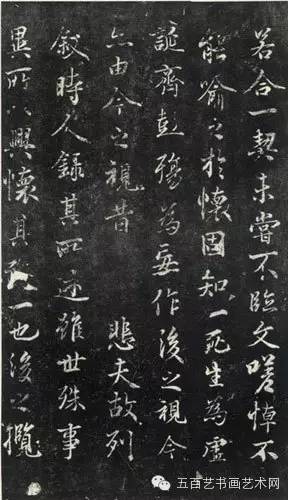 若合一契未嘗不臨文嗟悼不
能喻之於懷固知一死生為虛
誕齊彭殤為妄作後之視今
亦由今之視昔 悲夫故列
敘時人錄其所述雖世殊事
異所以興懷其致一也後之攬
五百艺书画艺术网